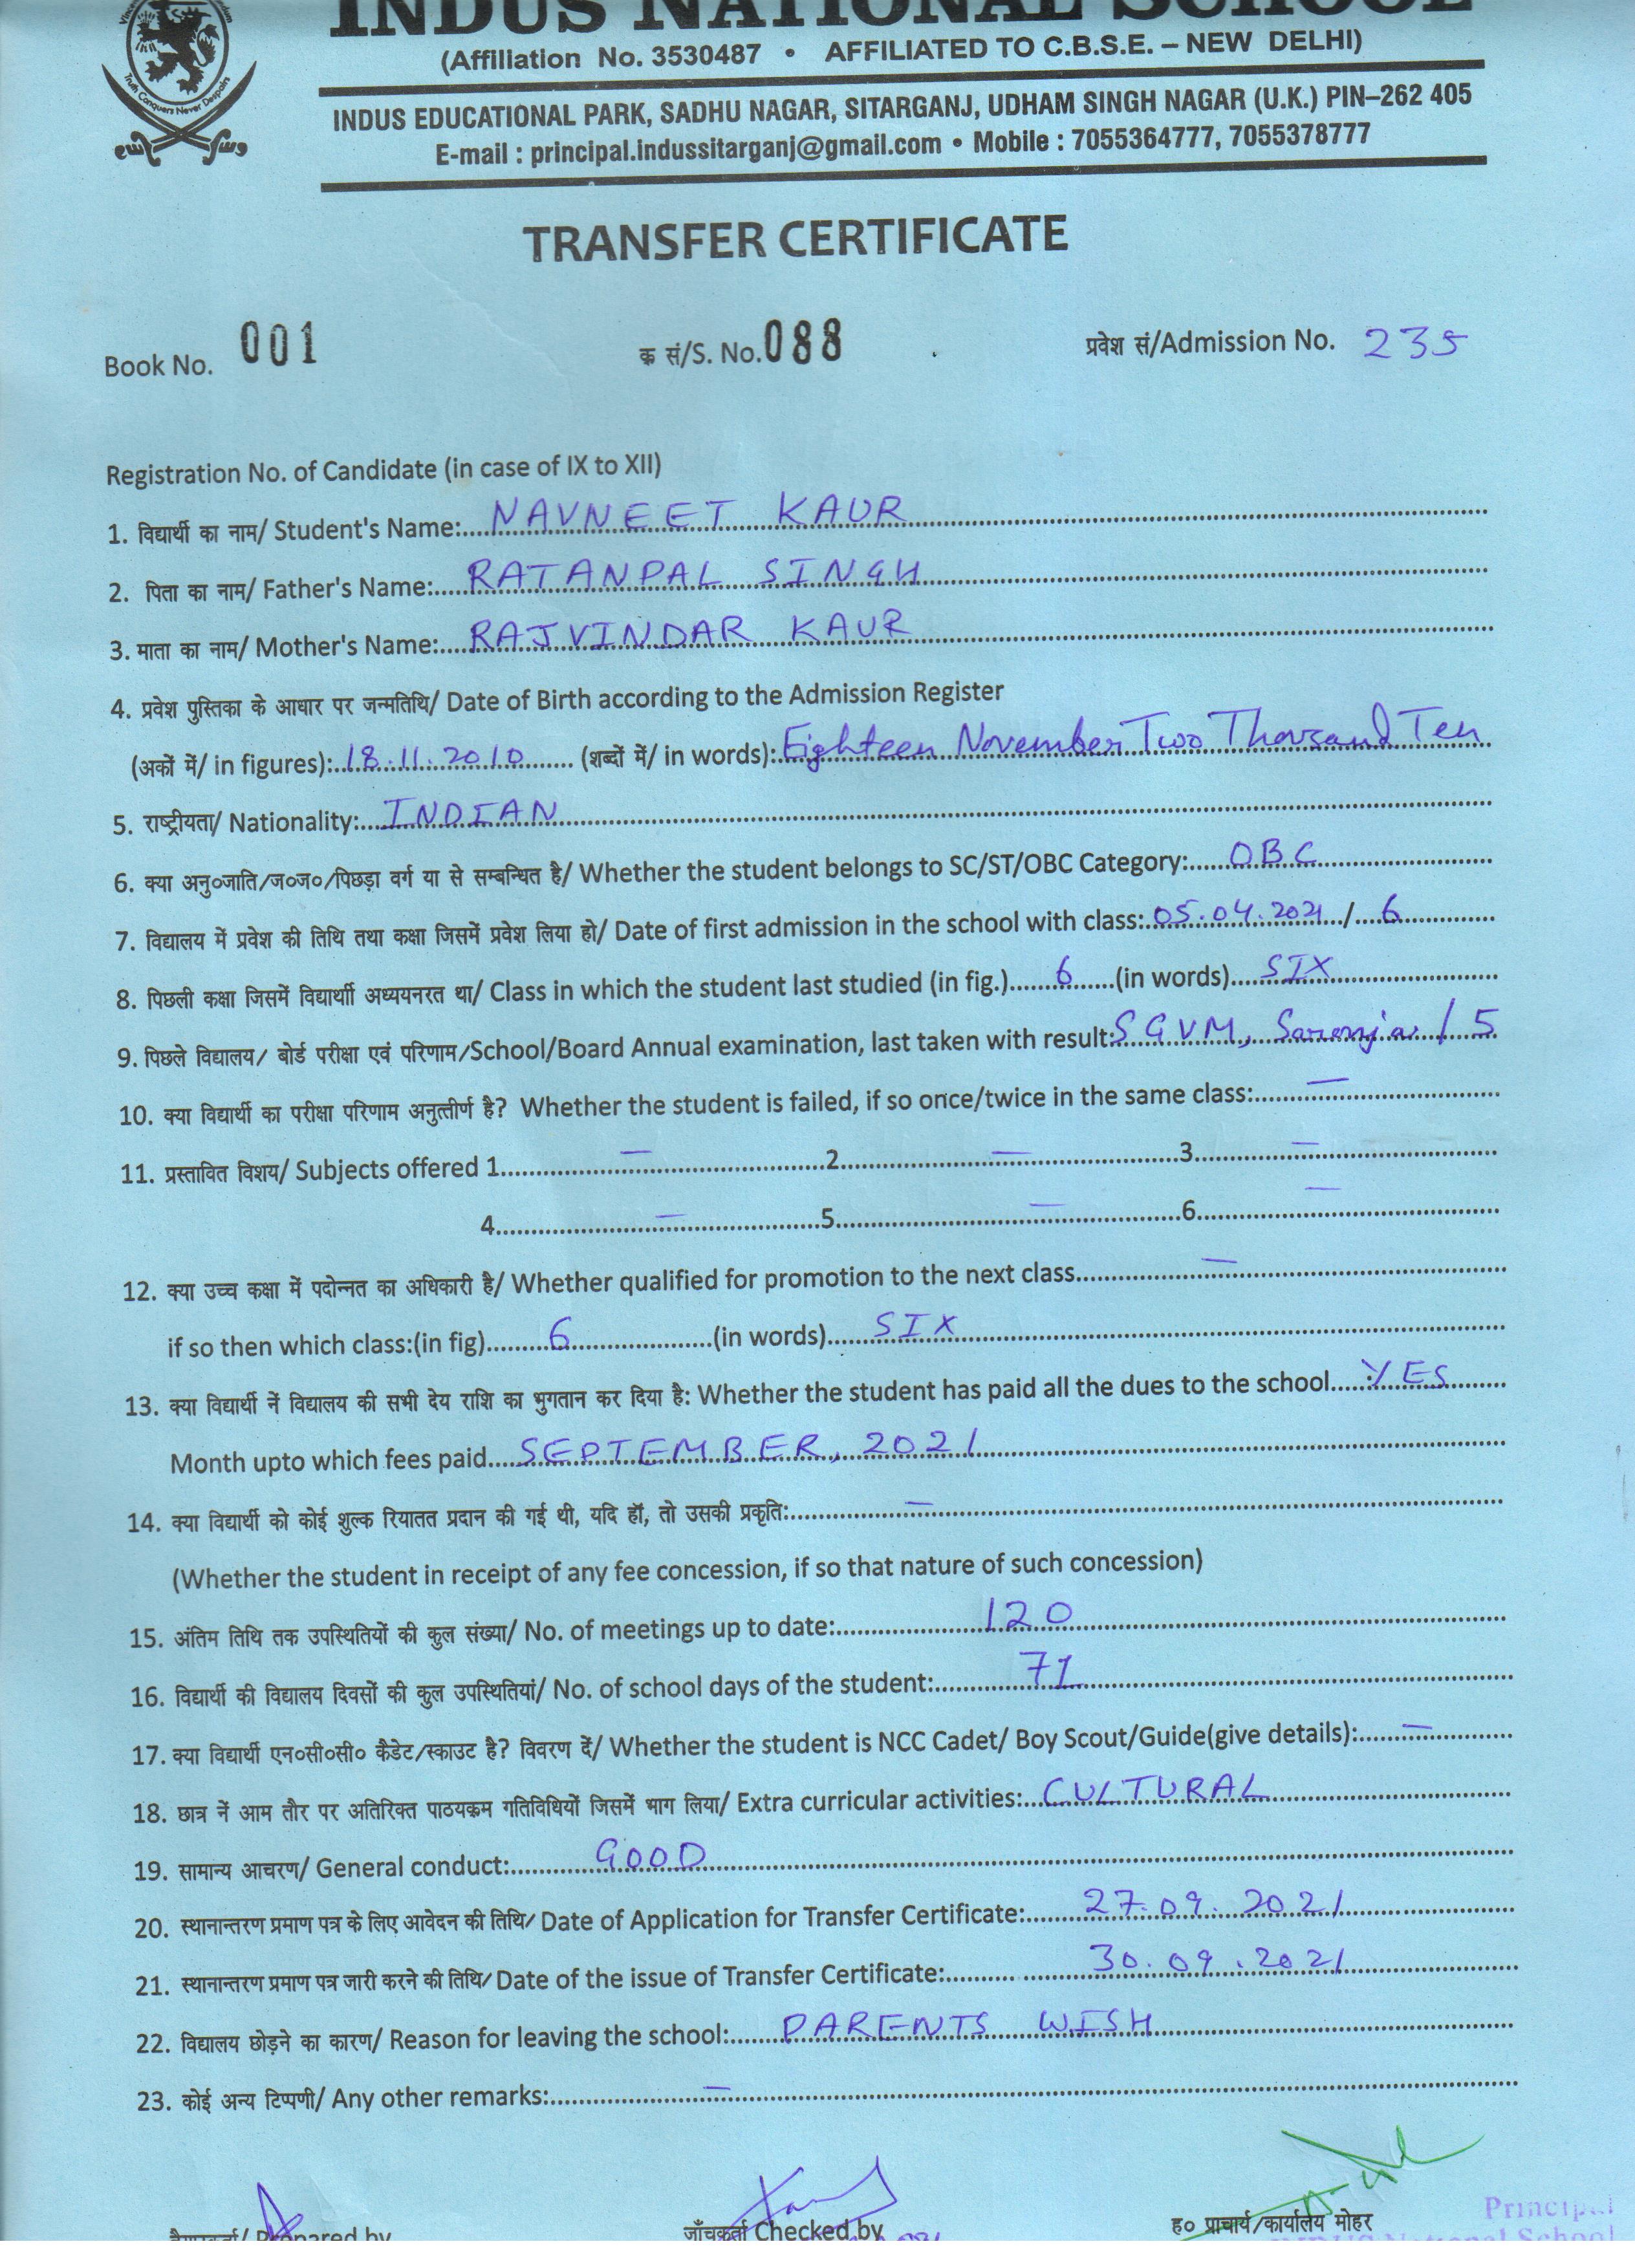 INDUS NATIONAL SCHOOL
(Affiliation No. 3530487 • AFFILIATED TO C.B.S.E. – NEW DELHI)
Truth Conquers Never Despair
INDUS EDUCATIONAL PARK, SADHU NAGAR, SITARGANJ, UDHAM SINGH NAGAR (U.K.) PIN–262 405
E-mail : principal.indussitarganj@gmail.com • Mobile : 7055364777, 7055378777
TRANSFER CERTIFICATE
Book No. 001 क्र सं/S. No. 088 प्रवेश सं/Admission No. 235
Registration No. of Candidate (in case of IX to XII)
1. विद्यार्थी का नाम/ Student's Name: NAVNEET KAUR
2. पिता का नाम/ Father's Name: RATANPAL SINGH
3. माता का नाम/ Mother's Name: RAJVINDAR KAUR
4. प्रवेश पुस्तिका के आधार पर जन्मतिथि/ Date of Birth according to the Admission Register
(अकों में/ in figures): 18.11.2010 (शब्दों में/ in words): Eighteen November Two Thousand Ten
5. राष्ट्रीयता/ Nationality: INDIAN
6. क्या अनु०जाति/ज०ज०/पिछड़ा वर्ग या से सम्बन्धित है/ Whether the student belongs to SC/ST/OBC Category: OBC
7. विद्यालय में प्रवेश की तिथि तथा कक्षा जिसमें प्रवेश लिया हो/ Date of first admission in the school with class: 05.04.2021 / 6
8. पिछली कक्षा जिसमें विद्यार्थी अध्ययनरत था/ Class in which the student last studied (in fig.) 6 (in words) SIX
9. पिछले विद्यालय/ बोर्ड परीक्षा एवं परिणाम/School/Board Annual examination, last taken with result: SGVM, / 5
10. क्या विद्यार्थी का परीक्षा परिणाम अनुत्तीर्ण है? Whether the student is failed, if so once/twice in the same class: —
11. प्रस्तावित विशय/ Subjects offered 1. — 2. — 3. —
4. — 5. — 6. —
12. क्या उच्च कक्षा में पदोन्नत का अधिकारी है/ Whether qualified for promotion to the next class —
if so then which class:(in fig) 6 (in words) SIX
13. क्या विद्यार्थी नें विद्यालय की सभी देय राशि का भुगतान कर दिया है: Whether the student has paid all the dues to the school YES
Month upto which fees paid SEPTEMBER, 2021
14. क्या विद्यार्थी को कोई शुल्क रियातत प्रदान की गई थी, यदि हॉ, तो उसकी प्रकृति: —
(Whether the student in receipt of any fee concession, if so that nature of such concession)
15. अंतिम तिथि तक उपस्थितियों की कुल संख्या/ No. of meetings up to date: 120
16. विद्यार्थी की विद्यालय दिवसों की कुल उपस्थितियां/ No. of school days of the student: 71
17. क्या विद्यार्थी एन०सी०सी० कैडेट/स्काउट है? विवरण दें/ Whether the student is NCC Cadet/ Boy Scout/Guide(give details): —
18. छात्र नें आम तौर पर अतिरिक्त पाठयक्रम गतिविधियों जिसमें भाग लिया/ Extra curricular activities: CULTURAL
19. सामान्य आचरण/ General conduct: GOOD
20. स्थानान्तरण प्रमाण पत्र के लिए आवेदन की तिथि/ Date of Application for Transfer Certificate: 27.09.2021
21. स्थानान्तरण प्रमाण पत्र जारी करने की तिथि/ Date of the issue of Transfer Certificate: 30.09.2021
22. विद्यालय छोड़ने का कारण/ Reason for leaving the school: PARENTS WISH
23. कोई अन्य टिप्पणी/ Any other remarks: —
Prepared by जाँचकर्ता Checked by ह० प्राचार्य/कार्यालय मोहर
Principal
INDUS National School